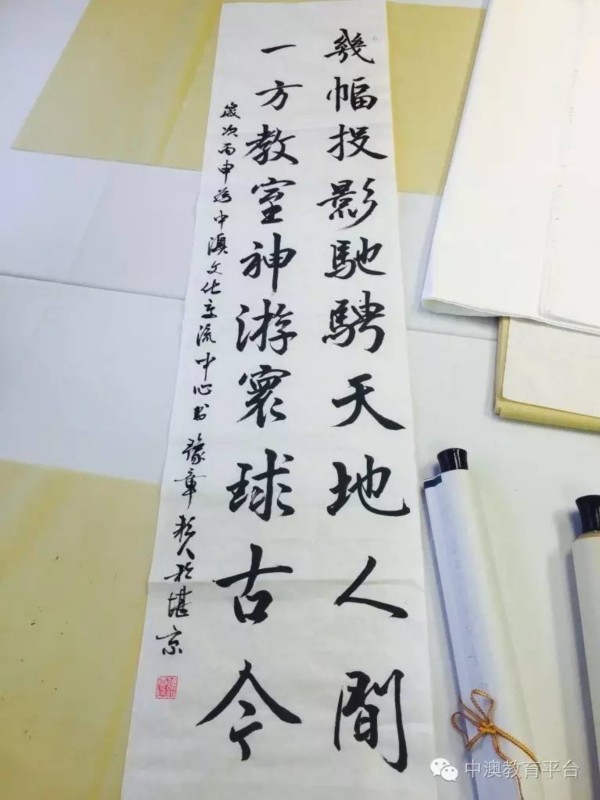 幾幅投影馳騁天地人間
一方教室神游寰球古今
歲次丙申為中澳文化交流中心書 豫章 於堪京
中澳教育平台